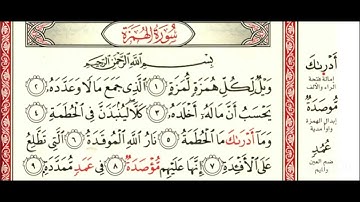 سُورَةُ الهُمَزَةِ
بِسْمِ اللَّهِ الرَّحْمَٰنِ الرَّحِيمِ
وَيْلٌ لِّكُلِّ هُمَزَةٍ لُّمَزَةٍ ١ الَّذِي جَمَعَ مَالًا وَعَدَّدَهُ ٢
يَحْسَبُ أَنَّ مَالَهُ أَخْلَدَهُ ٣ كَلَّا لَيُنبَذَنَّ فِي الْحُطَمَةِ ٤
وَمَا أَدْرَىٰكَ مَا الْحُطَمَةُ ٥ نَارُ اللَّهِ الْمُوقَدَةُ ٦ الَّتِي تَطَّلِعُ
عَلَى الْأَفْـِٔدَةِ ٧ إِنَّهَا عَلَيْهِم مُّوصَدَةٌ ٨ فِي عَمَدٍ مُّمَدَّدَةٍ ٩
أَدْرَىٰكَ
إمالة فتحة
الراء والألف
مُوصَدَةٌ
إبدال الهمزة
واوا مدية
عُمُدٍ
ضم العين
والميم